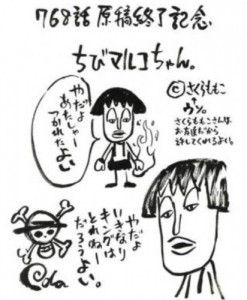 768話 原稿終了記念
ちびマルコちゃん。
©さくらももこ
さくらももこさんは
お友達だから
許してくれるよい。
やだよ
あたしゃー
つかれた
よい
やだよ
いきなり
キングは
とれねー
だろうよい。
Oda